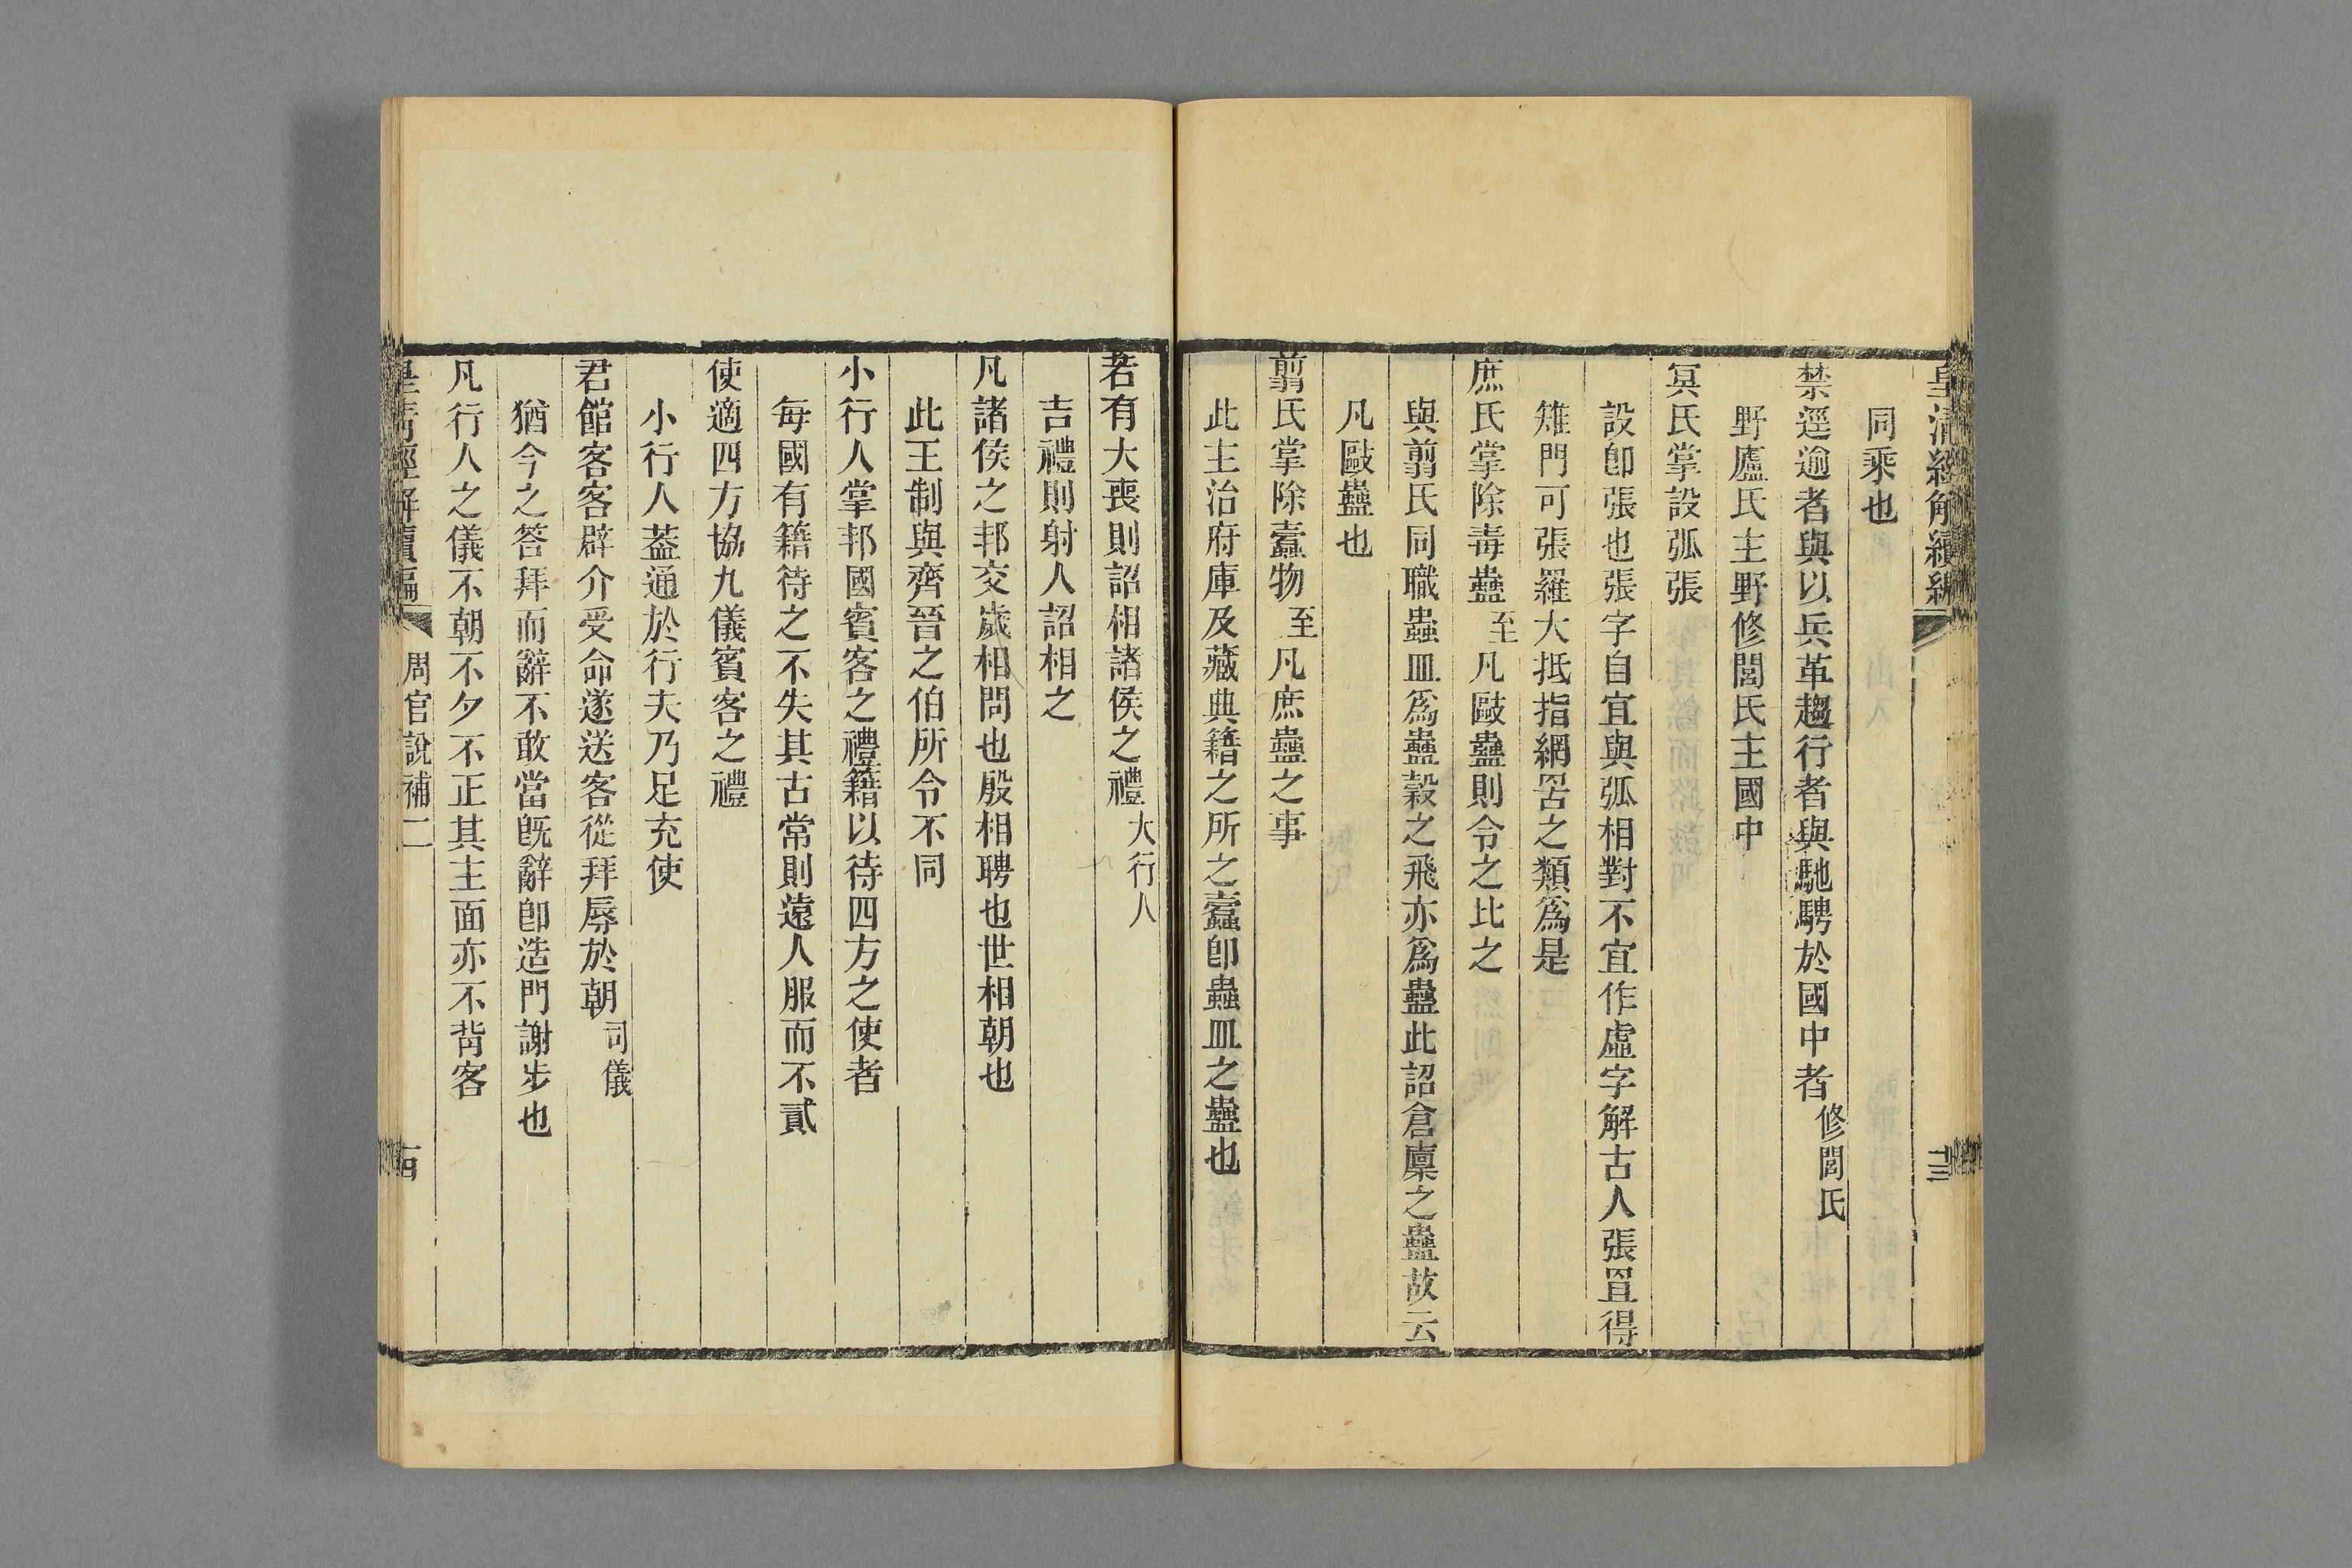 皇清經解續編
十三
同乘也
禁逕逾者與以兵革趨行者與馳騁於國中者修閭氏
野廬氏主野修閭氏主國中
冥氏掌設弧張
設卽張也張字自宜與弧相對不宜作虛字解古人張罝得
雉門可張羅大抵指網罟之類爲是
庶氏掌除毒蠱至凡毆蠱則令之比之
與翦氏同職蟲皿爲蠱穀之飛亦爲蠱此詔倉廩之蠱故云
凡毆蠱也
翦氏掌除蠹物至凡庶蠱之事
此主治府庫及藏典籍之所之蠹卽蟲皿之蠱也
若有大喪則詔相諸侯之禮大行人
吉禮則射人詔相之
凡諸侯之邦交歲相問也殷相聘也世相朝也
此王制與齊晉之伯所令不同
小行人掌邦國賓客之禮籍以待四方之使者
每國有籍待之不失其古常則遠人服而不貳
使適四方協九儀賓客之禮
小行人葢通於行夫乃足充使
君館客客辟介受命遂送客從拜辱於朝司儀
猶今之答拜而辭不敢當旣辭卽造門謝步也
凡行人之儀不朝不夕不正其主面亦不背客
皇清經解續編
周官說補二
十四